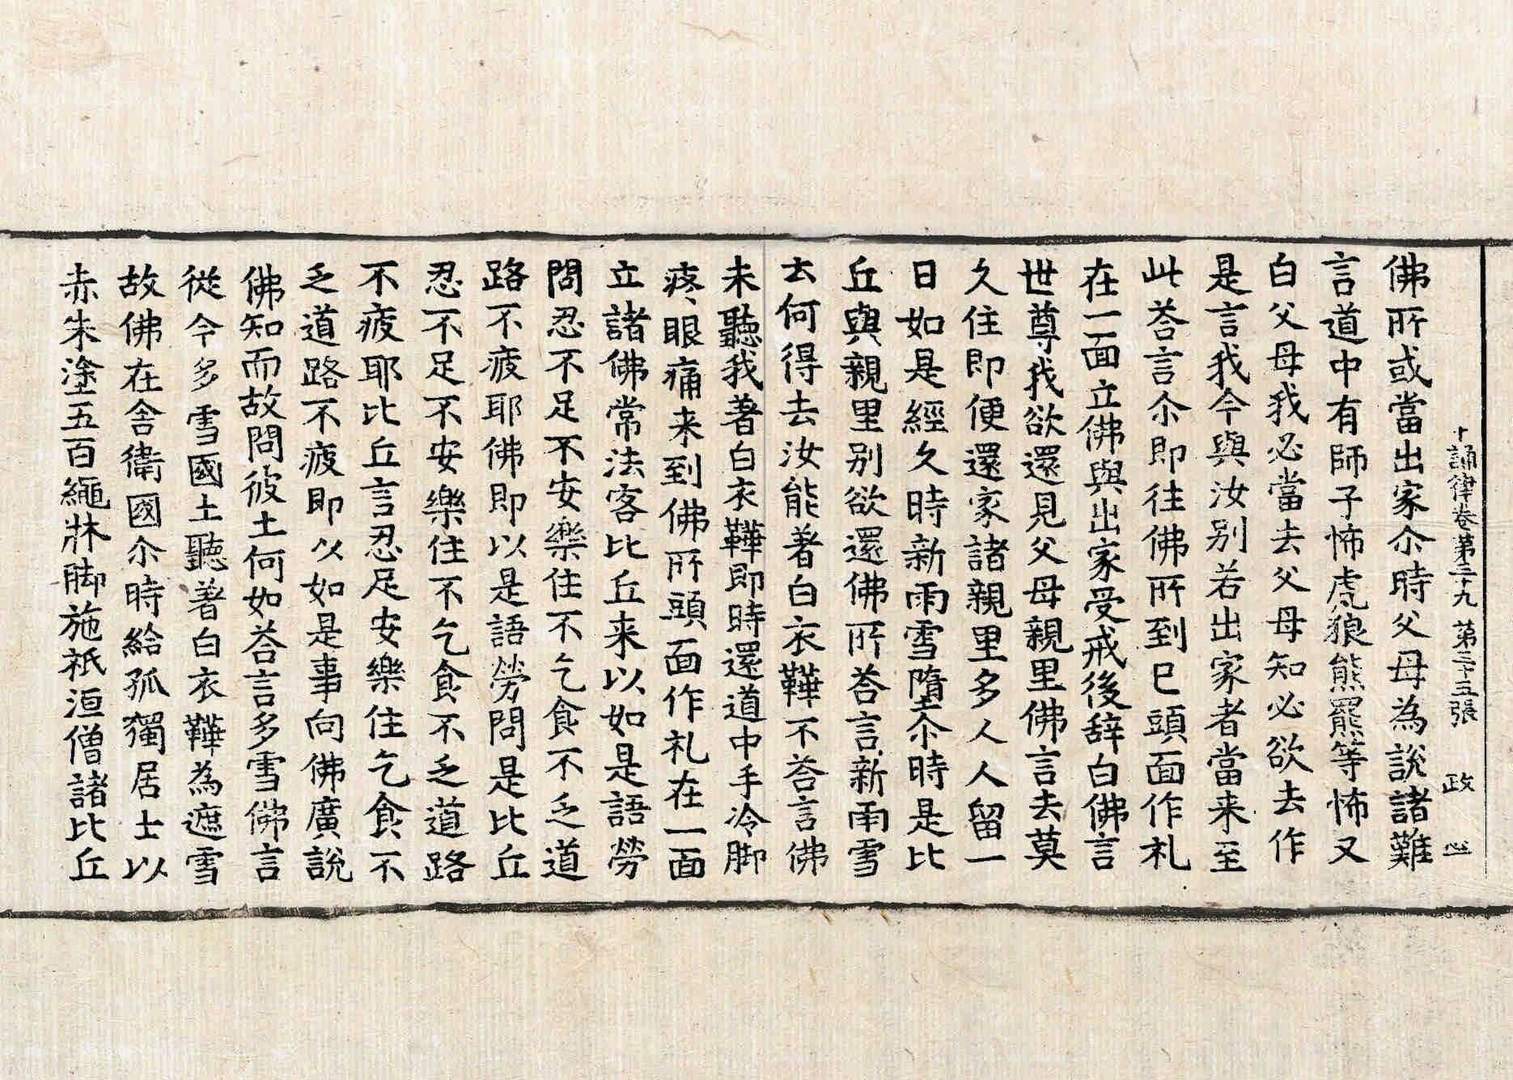 十誦律卷第三十九 第三十五張 政
佛所或當出家尒時父母為說諸難
言道中有師子怖虎狼熊羆等怖又
白父母我必當去父母知必欲去作
是言我今與汝別若出家者當来至
此荅言尒即往佛所到已頭面作礼
在一面立佛與出家受戒後辞白佛言
世尊我欲還見父母親里佛言去莫
久住即便還家諸親里多人人留一
日如是經久時新雨雪墮尒時是比
丘與親里別欲還佛所荅言新雨雪
去何得去汝能著白衣鞾不荅言佛
未聽我著白衣鞾即時還道中手冷脚
疼眼痛来到佛所頭面作礼在一面
立諸佛常法客比丘来以如是語勞
問忍不足不安樂住不乞食不乏道
路不疲耶佛即以是語勞問是比丘
忍不足不安樂住不乞食不乏道路
不疲耶比丘言忍足安樂住乞食不
乏道路不疲即以如是事向佛廣說
佛知而故問彼土何如荅言多雪佛言
從今多雪國土聽著白衣鞾為遮雪
故佛在舍衛國尒時給孤獨居士以
赤朱塗五百繩牀脚施祇洹僧諸比丘